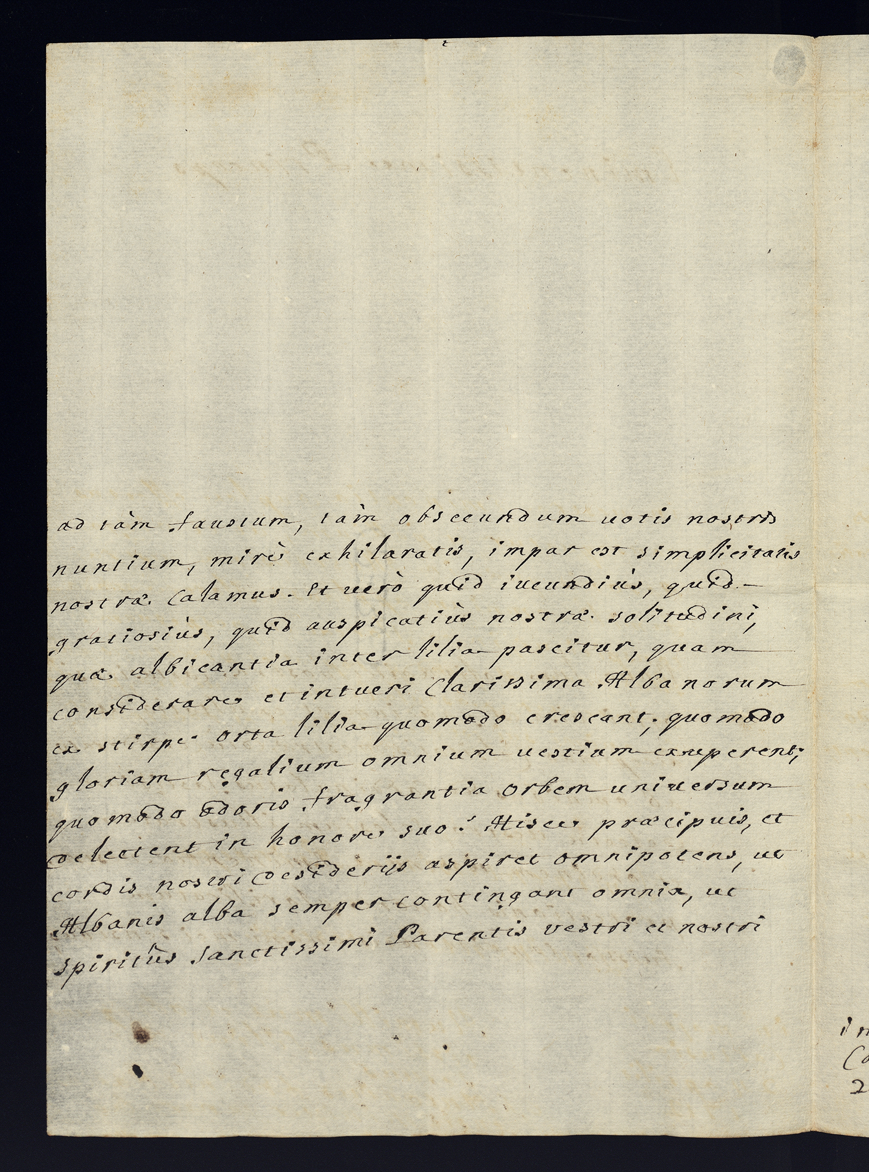 ad tàm faustum, tàm obsecundum votis nostris
nuntium, mirè exhilaratis, impar est simplicitatis
nostræ calamus. Et verò quid iucundiùs, quid
gratiosiùs, quid auspicatiùs nostræ solitudini,
quæ albicantia inter lilia pascitur, quam
considerare et intueri Clarissima Albanorum
ex stirpe orta lilia quomodo crescant; quomodo
gloriam regalium omnium vestium exuperent;
quomodo odoris fragrantia orbem universum
delectent in honore suo? Hisce præcipuis, et
cordis nostri desiderijs aspiret omnipotens, ut
Albanis alba semper contingant omnia, ut
spiritûs Sanctissimi Parentis vestri et nostri
in
Ca
2